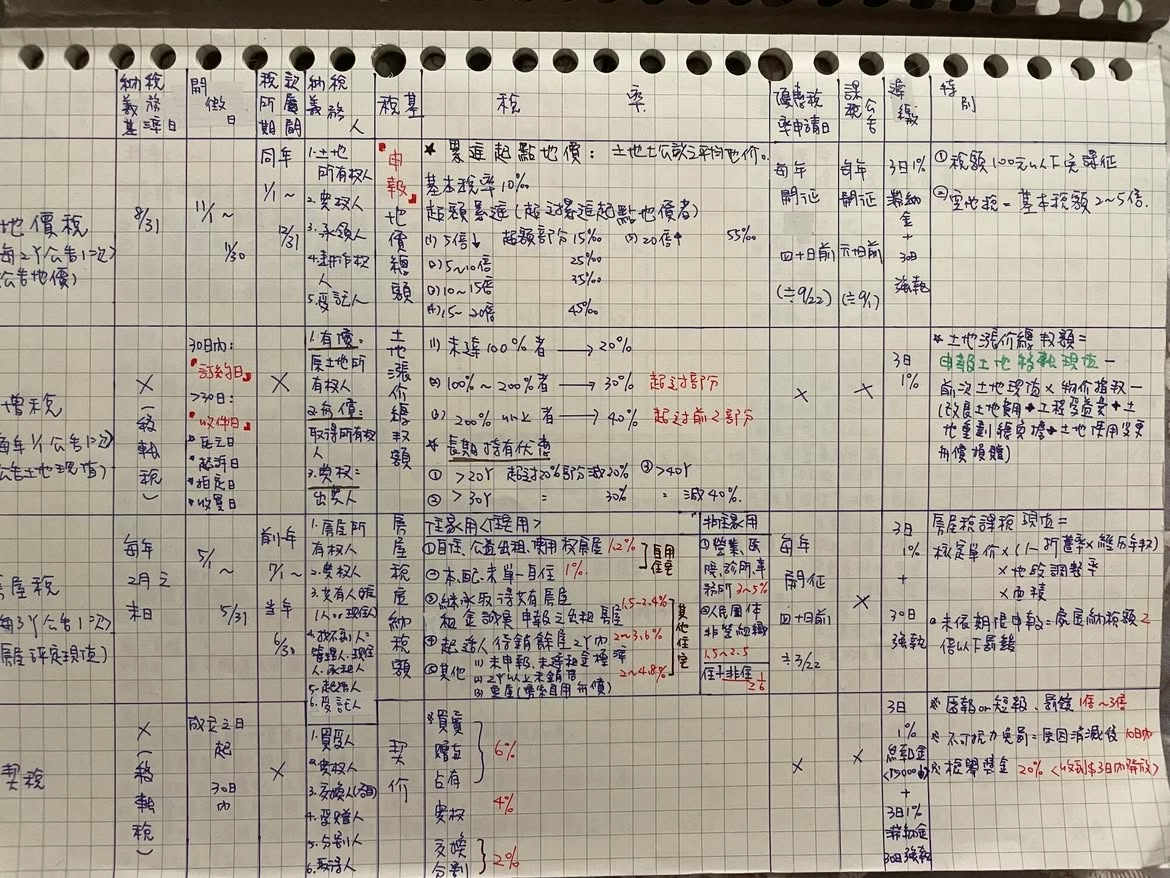 納稅義務基準日
開徵日
稅款所屬期間
納稅義務人
稅基
稅率
優惠稅率申請日
課稅公告
滯繳
特別
地價稅
每2Y公告1次)
公告地價)
8/31
11/1～
11/30
同年
1/1～
12/31
1.土地
所有權人
2.典權人
3.承領人
4.耕作權
人
5.受託人
「申報」地價總額
★ 累進起點地價：土地七公畝之平均地价。
基本稅率10‰
超額累進(超過累進起點地價者)
(1) 5倍↓ 超額部分15‰ (5) 20倍↑ 55‰
(2) 5~10倍 25‰
(3) 10~15倍 35‰
(4) 15~20倍 45‰
每年
開征
四十日前
(≒9/22)
每年
開征
六十日前
(≒9/1)
3日1%
滯納
金
+
30日
強執
① 稅額100元以下免課征
② 空地稅=基本稅額2~5倍.
增稅
每年1/1公告1次)
公告土地現值)
×(移轉稅)
30日內：
「訂約日」
>30日：
「收件日」
死亡日
起訴日
拍定日
收買日
×
1.有償：
原土地所
有權人
2.無償：
取得所有權
人
3.典權：
出典人
土地漲价總數額
(1) 未達100%者 → 20%
(2) 100%~200%者 → 30% 超过部分
(3) 200%以上者 → 40% 超过前之部分
★ 長期持有优惠
① >20Y 超过20%部分減20% ③ >40Y
② >30Y = 30% = 減40%.
×
×
3日
1%
*土地漲价總數額=
申報土地移轉現值-
前次土地現值×物价指数-
(改良土地費+工程受益費+土
地重劃總負擔+土地使用变更
無償捐贈)
房屋稅
每3Y公告1次)
房屋評定現值)
每年
2月之
末日
5/1
～
5/31
前一年
7/1～
当年
6/30
1.房屋所
有權人
2.典權人
3.共有人推
1人or現住人
4.找不到人=
管理人.現住
人.承租人
5.起造人
6.受託人
房屋稅應納稅額
住家用<住民用>
①自住,公益出租,使用权房屋1.2%
②本,配,未單一自住 1%.
自用住宅
③繼承取得共有房屋
租金誠實申報之出租房屋 1.5~2.4%
④起造人待銷餘屋2Y內 2~3.6%
⑤其他 (1)未申報.未達租金標準
(2) 2Y以上未銷售
(3)空屋(需係自用無償)
2~4.8%
其他住宅
非住家用
①營業、医
院、診所、事
務所 3~5%
②人民團体
非營組織
1.5~2.5
住+非住 1/6
每年
開征
四十日前
≒3/22
×
3日
1%
+
30日
強執
房屋稅課稅現值=
核定單价×(1-折舊率×經历年数)
×地段調整率
×面積
*未依期限申報=處應納稅額2
倍以下罰鍰
契稅
×(移轉稅)
成立之日
起
30日
內
×
1.買受人
2.典权人
3.交換人(各自)
4.受贈人
5.分割人
契价
*買賣
贈与
占有
6%
典权
4%
交換
分割
2%
×
×
3日
1%
怠報金
<15000內
+
3日1%
滯納金
30日強執
* 匿報or短報、罰鍰1倍~3倍
* 不可抗力免罰=原因消滅後10日內
* 檢舉獎金 20% <收到$3日內發放>